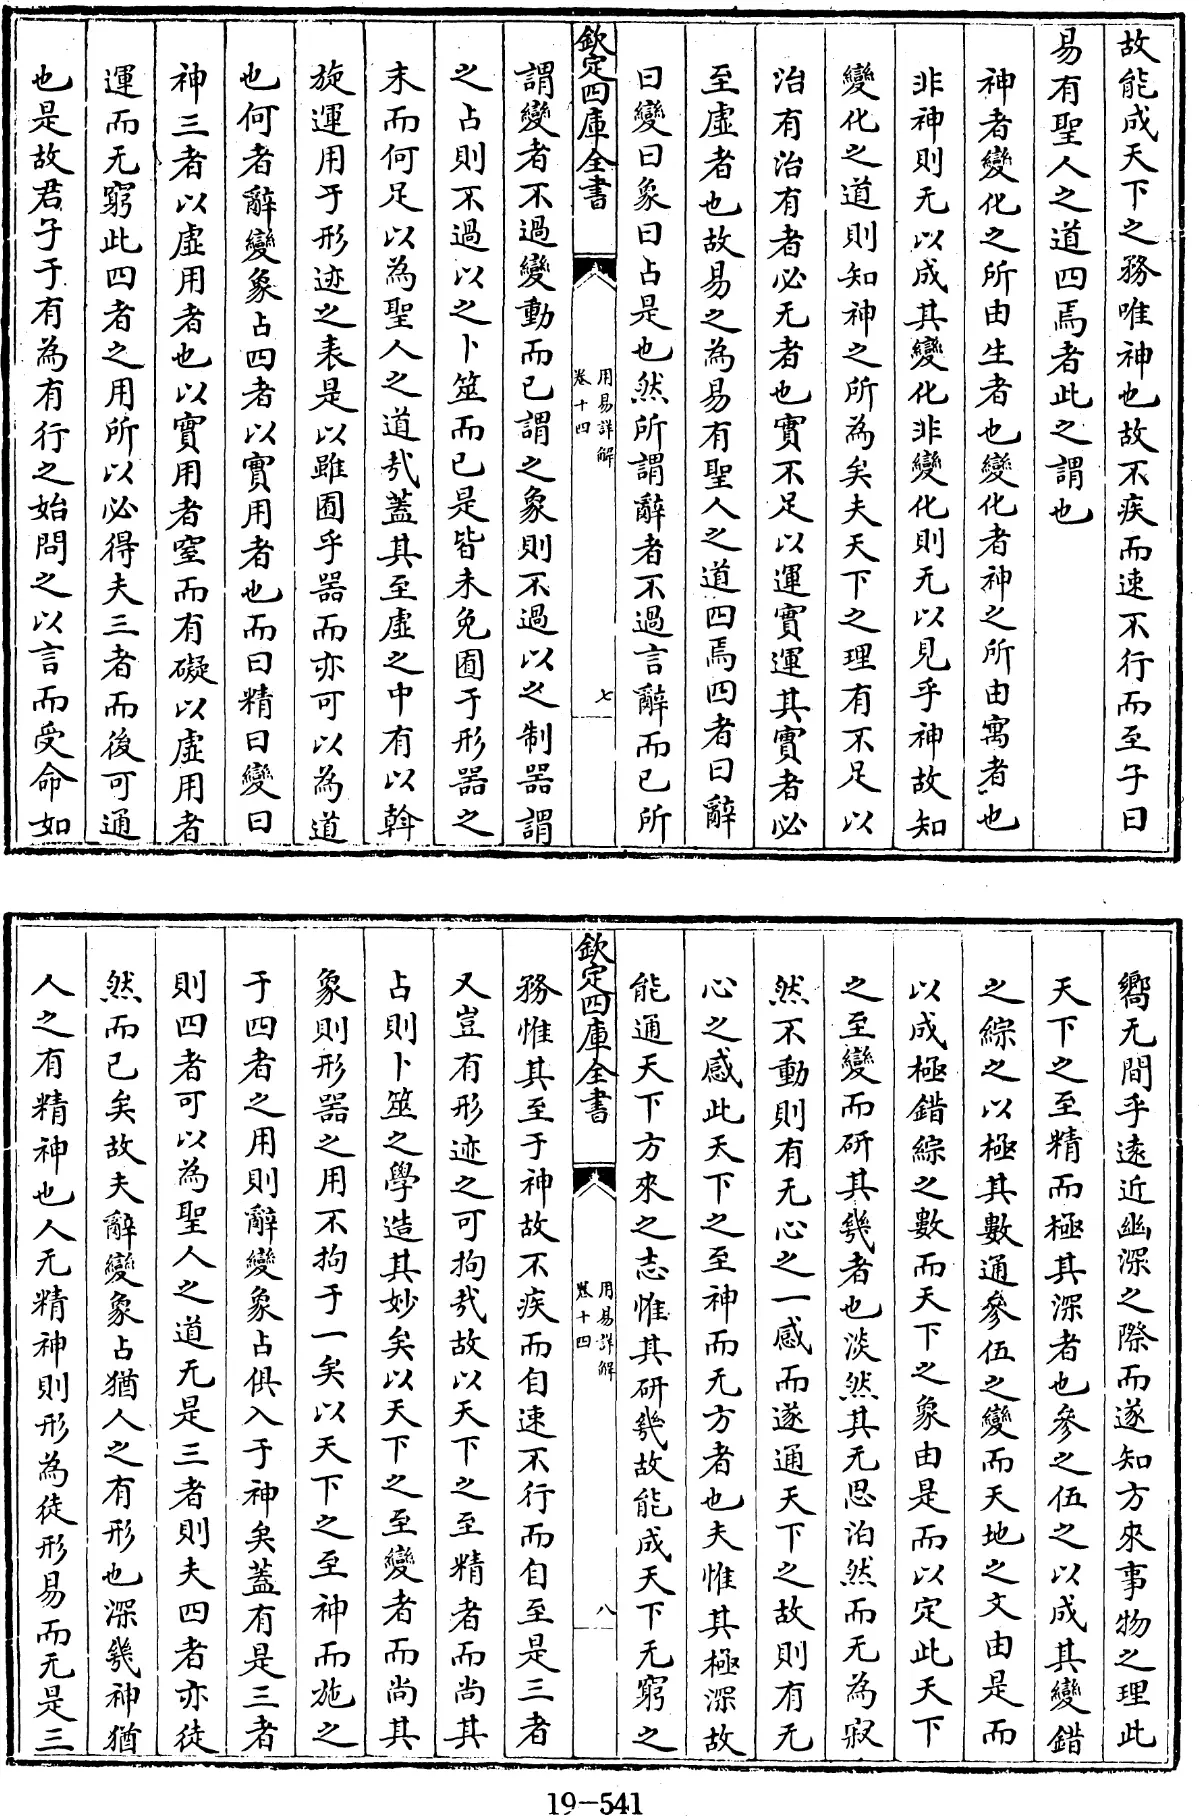 故能成天下之務唯神也故不疾而速不行而至子曰
易有聖人之道四焉者此之謂也
神者變化之所由生者也變化者神之所由寓者也
非神則无以成其變化非變化則无以見乎神故知
變化之道則知神之所為矣夫天下之理有不足以
治有治有者必无者也實不足以運實運其實者必
至虛者也故易之為易有聖人之道四焉四者曰辭
曰變曰象曰占是也然所謂辭者不過言辭而已所
欽定四庫全書
用易詳解
卷十四
七
謂變者不過變動而已謂之象則不過以之制器謂
之占則不過以之卜筮而已是皆未免囿于形器之
末而何足以為聖人之道㢤蓋其至虛之中有以斡
旋運用于形迹之表是以雖囿乎器而亦可以為道
也何者辭變象占四者以實用者也而曰精曰變曰
神三者以虛用者也以實用者窒而有礙以虛用者
運而无窮此四者之用所以必得夫三者而後可通
也是故君子于有為有行之始問之以言而受命如
嚮无間乎遠近幽深之際而遂知方來事物之理此
天下之至精而極其深者也參之伍之以成其變錯
之綜之以極其數通參伍之變而天地之文由是而
以成極錯綜之數而天下之象由是而以定此天下
之至變而研其㡬者也淡然其无思泊然而无為寂
然不動則有无心之一感而遂通天下之故則有无
心之感此天下之至神而无方者也夫惟其極深故
能通天下方來之志惟其研㡬故能成天下无窮之
欽定四庫全書
用易詳解
卷十四
八
務惟其至于神故不疾而自速不行而自至是三者
又豈有形迹之可拘㢤故以天下之至精者而尚其
占則卜筮之學造其妙矣以天下之至變者而尚其
象則形器之用不拘于一矣以天下之至神而施之
于四者之用則辭變象占俱入于神矣蓋有是三者
則四者可以為聖人之道无是三者則夫四者亦徒
然而已矣故夫辭變象占猶人之有形也深㡬神猶
人之有精神也人无精神則形為徒形易而无是三
19-541